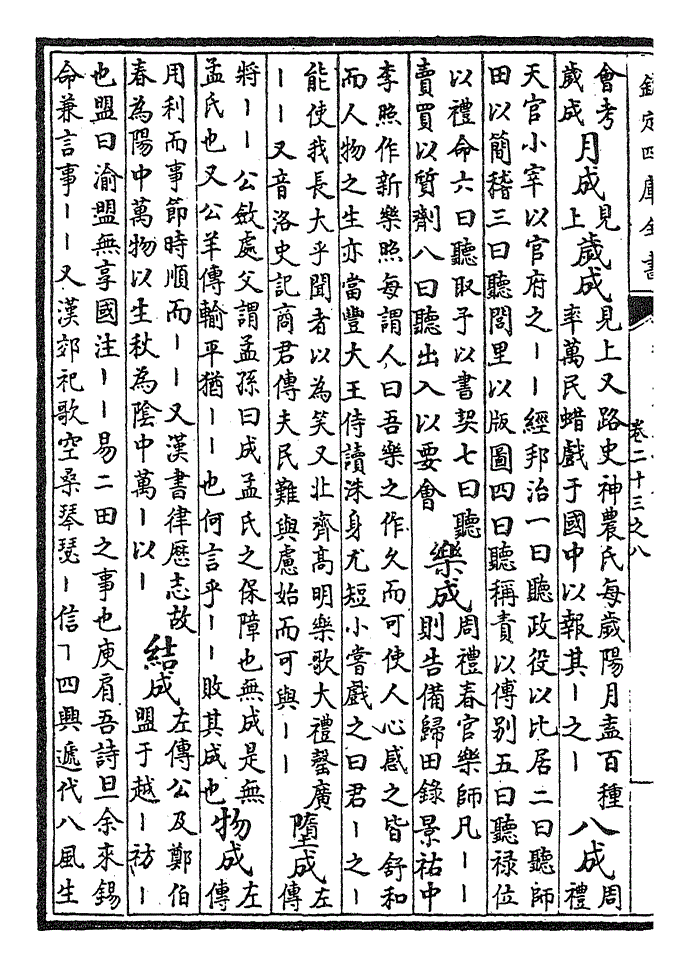 欽定四庫全書
卷二十三之八
會考
歲成
月成
見
上
歲成
見上又路史神農氏每歲陽月盍百種
率萬民蜡戲于國中以報其丨之丨
八成
周
禮
天官小宰以官府之丨丨經邦治一曰聽政役以比居二曰聽師
田以簡稽三曰聽閭里以版圖四曰聽稱責以傅别五曰聽祿位
以禮命六曰聽取予以書契七曰聽
賣買以質劑八曰聽出入以要會
樂成
周禮春官樂師凡丨丨
則告備歸田錄景祐中
李照作新樂照每謂人曰吾樂之作久而可使人心感之皆舒和
而人物之生亦當豐大王侍讀洙身尤短小嘗戲之曰君丨之丨
能使我長大乎聞者以為笑又北齊髙明樂歌大禮罄廣
丨丨又音洛史記商君傳夫民難與慮始而可與丨丨
墮成
左
傳
將丨丨公斂處父謂孟孫曰成孟氏之保障也無成是無
孟氏也又公羊傳輸平猶丨丨也何言乎丨丨敗其成也
物成
左
傳
用利而事節時順而丨丨又漢書律歷志故
春為陽中萬物以生秋為陰中萬丨以丨
結成
左傳公及鄭伯
盟于越丨祊丨
也盟曰渝盟無享國注丨丨易二田之事也庾肩吾詩旦余來錫
命兼言事丨丨又漢郊祀歌空桑琴瑟丨信丨四興遞代八風生